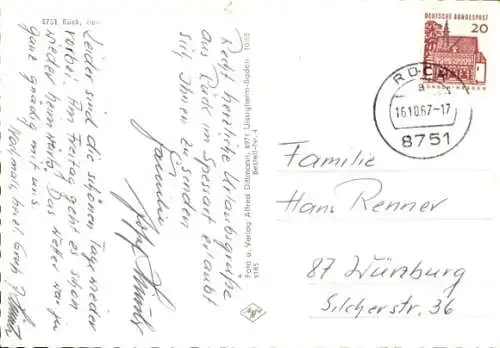 8751 Rück,
Recht herzliche Urlaubsgrüße
aus Rück im Spessart erlaubt
sich Ihnen zu senden
Familie
Leider sind die schönen Tage wieder
vorbei. Am Freitag geht es schon
wieder heimwärts. Das Wetter war ja
ganz gnädig mit uns.
Nochmals herzl.
Foto u. Verlag Alfred Dittmann, 6971 Uissigheim-Baden
Bestell-Nr. 4
1065
Agfa
DEUTSCHE BUNDESPOST
20
LORSCH-HESSEN
RÜCK
16.10.67-17
8751
Familie
Hans Renner
87 Würzburg
Silcherstr. 36